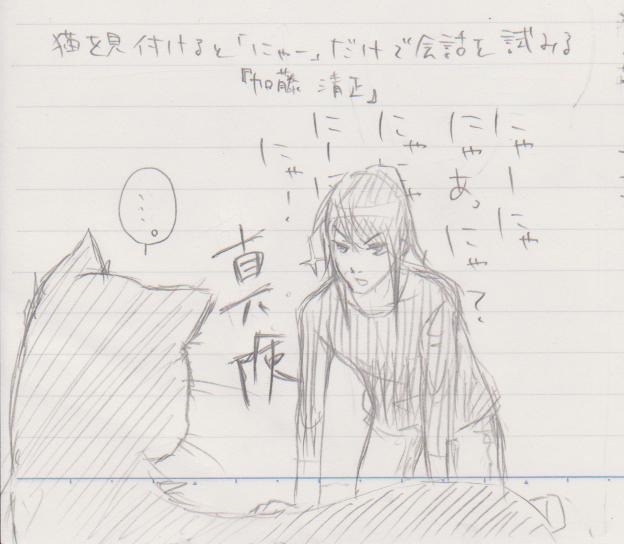 猫を見付けると「にゃー」だけで会話を試みる
『加藤 清正』
にゃーにゃ
にゃあ。にゃ？
にゃ
にーに
にゃー!
真剣
……。